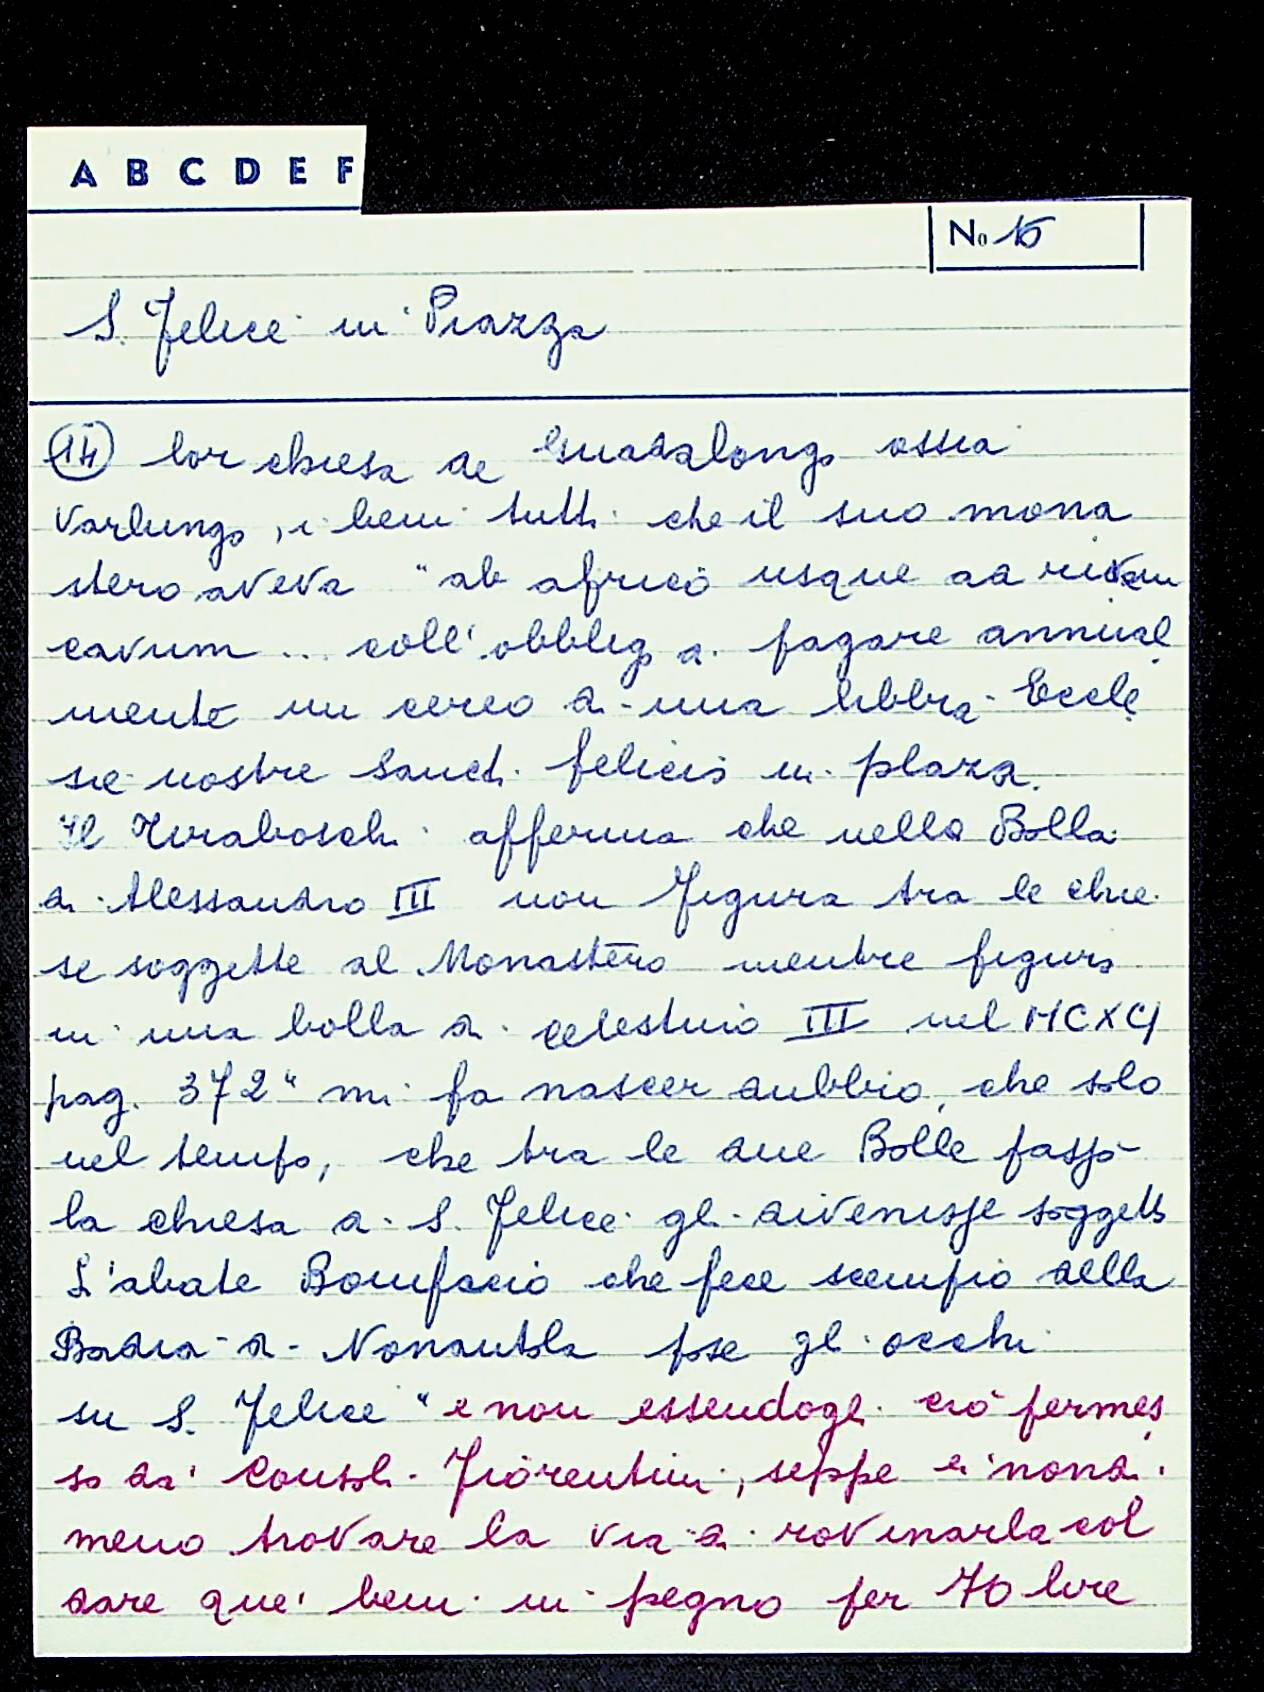 A B C D E F
No 15
S. Felice in Piazza
(14) lor chiesa di Guadalongo ossia
Varlungo, i beni tutti che il suo mona
stero aveva "ab africo usque ad
cavum ... coll'obbligo di pagare annual
mente un cereo di una libbra Eccle
sie nostre Sancti felicis in plaza.
Il Tiraboschi afferma che nella Bolla
di Alessandro III non figura tra le chie
se soggette al Monastero mentre figura
in una bolla di Celestino III nel MCXCI
pag. 372 "mi fa nascer dubbio, che solo
nel tempo, che tra le due Bolle passò
la chiesa di S. Felice gli divenisse soggetta
L'abate Bonifacio che fece scempio della
Badia di Nonantola pose gli occhi
su S. Felice "e non essendogli ciò permes
so da' Consoli Fiorentini, seppe
meno trovare la via di rovinarla col
dare que' beni in pegno per 70 lire